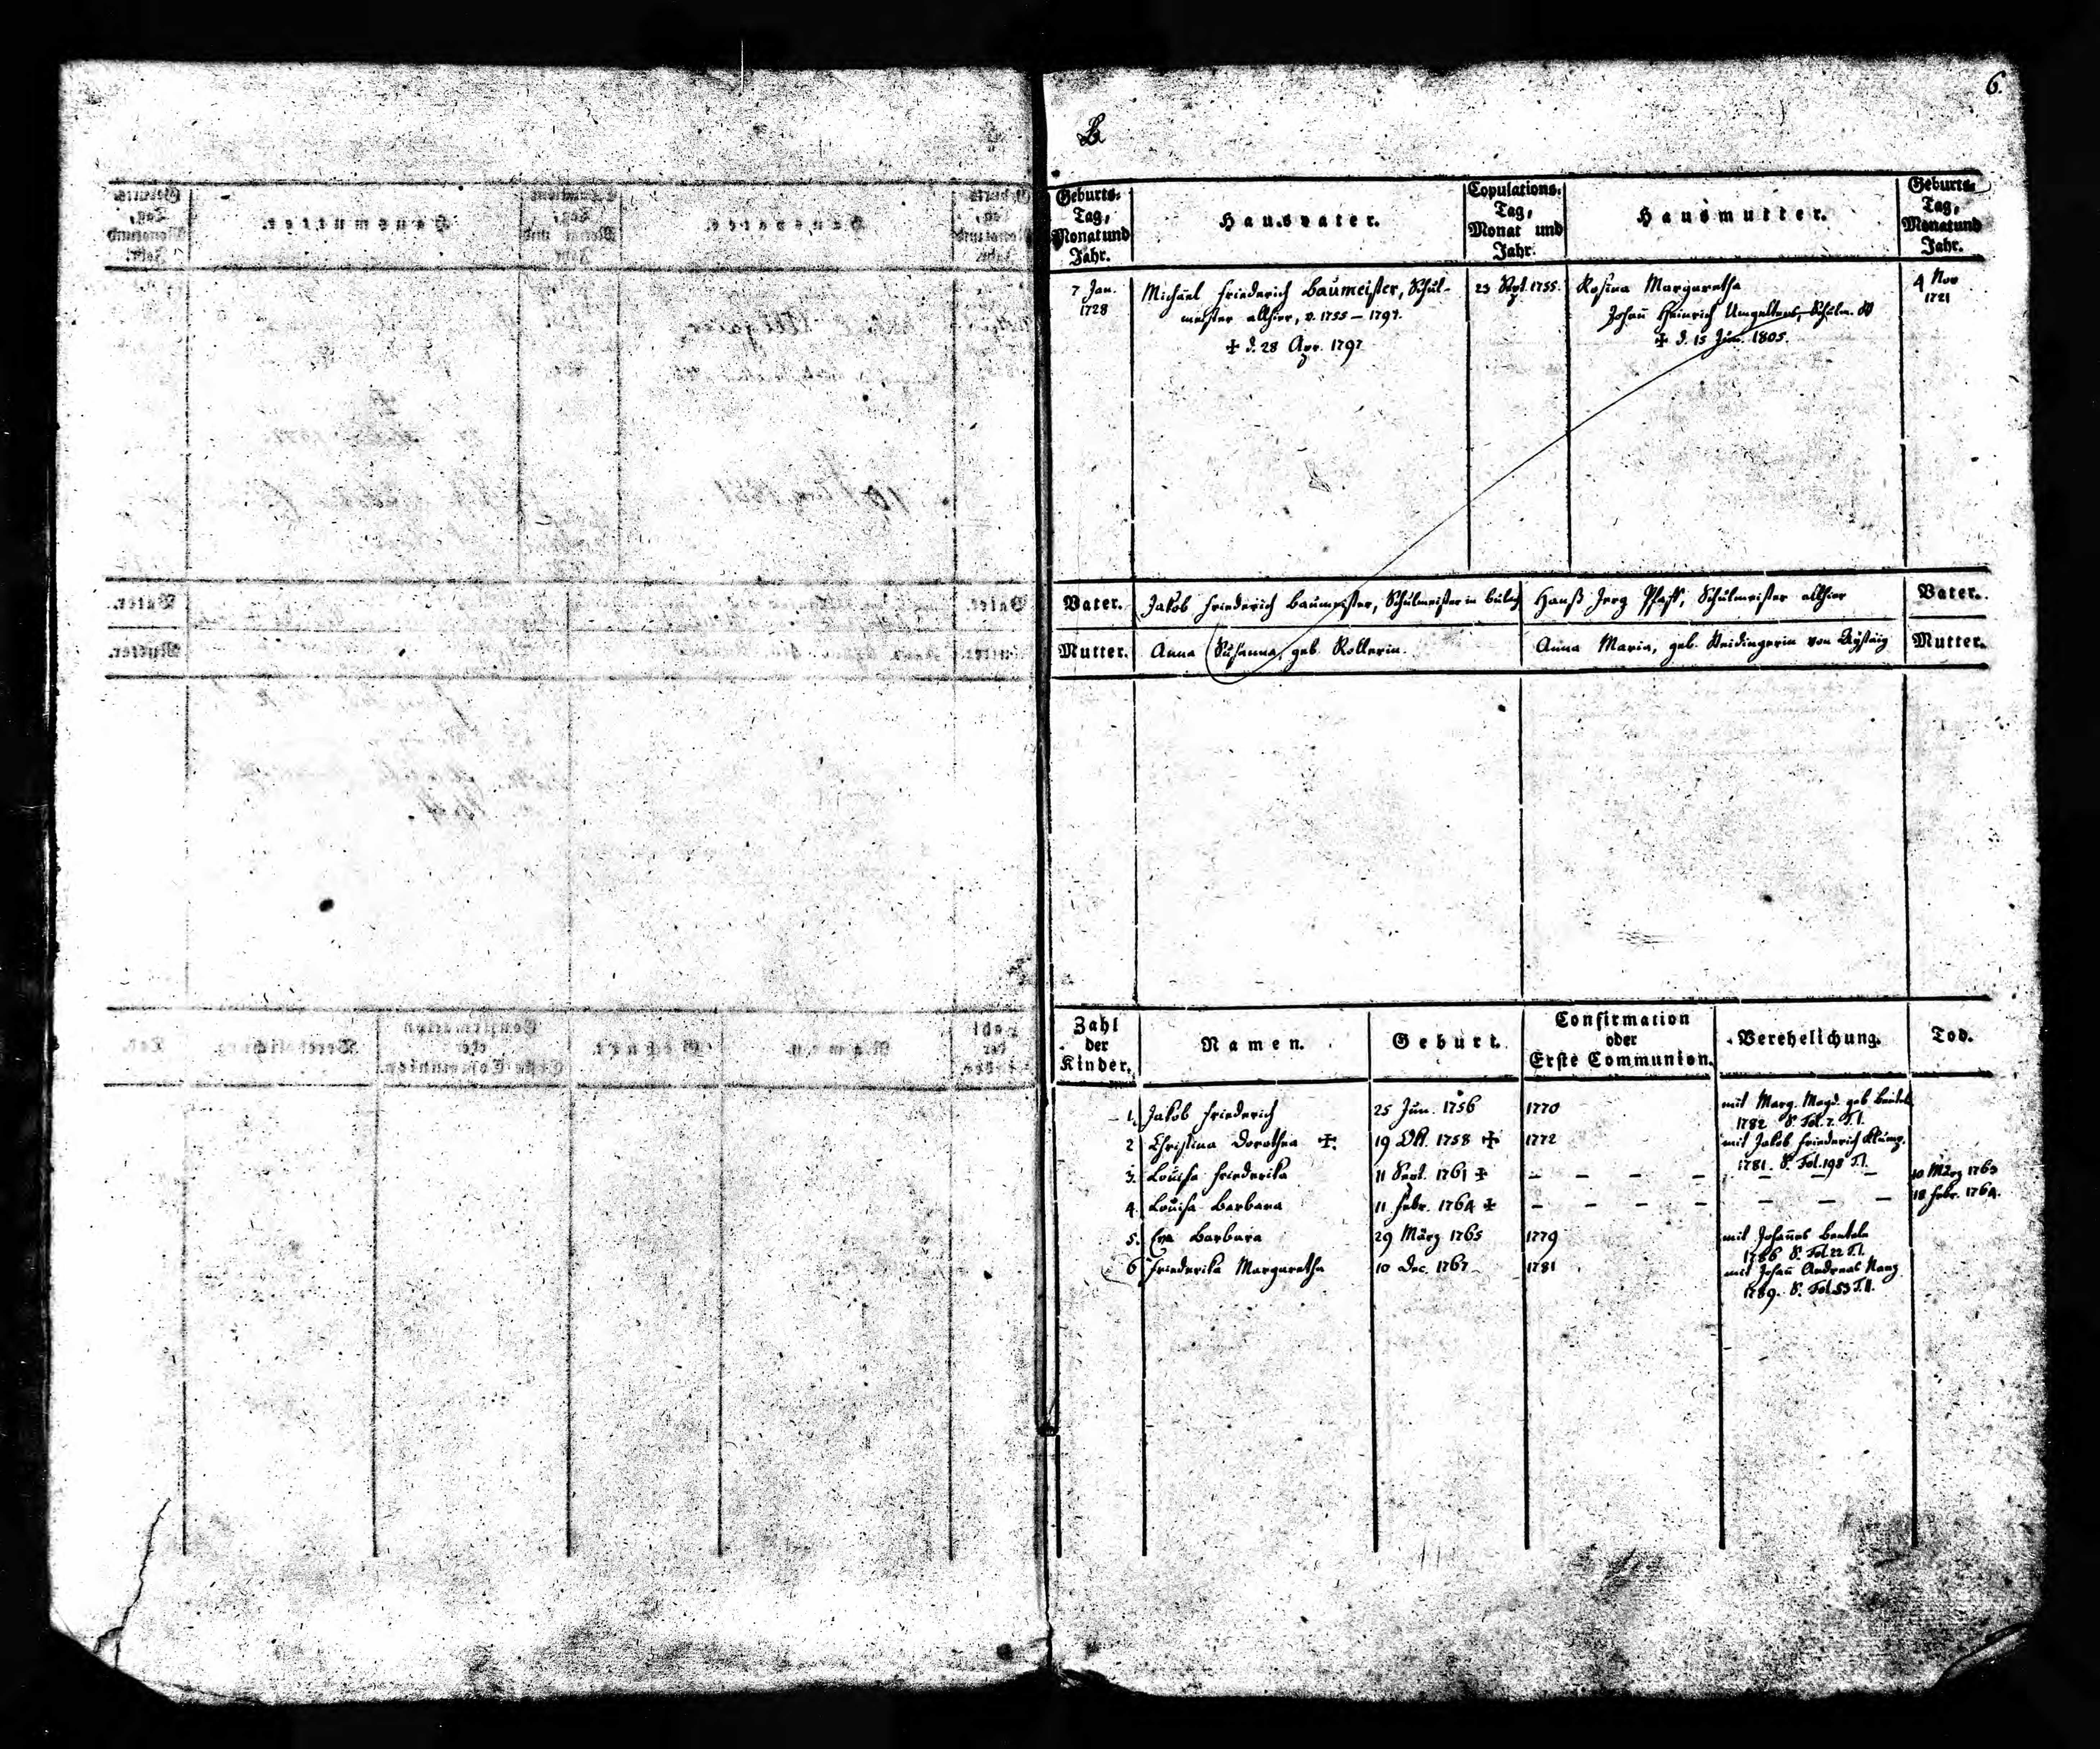 6.
B
Geburts-
Tag,
Monat und
Jahr.
Hausvater.
Copulations-
Tag,
Monat und
Jahr.
Hausmutter.
Geburts-
Tag,
Monat und
Jahr.
7 Jan.
1728
Michael Friederich Baumeister, Schul-
meister allhier, v. 1755 – 1797.
✝ d. 28 Apr. 1797
23 Sept. 1755.
Rosina Margaretha
Johañ Heinrich Umgelters, Schulm. W
✝ d. 15 Jun. 1805.
4 Nov
1721
Vater.
Jakob Friederich Baumeister, Schulmeister in
Hanß Jerg Pfaff, Schulmeister allhier
Vater.
Mutter.
Anna Susanna, geb. Rollerin.
Anna Maria, geb. von
Mutter.
Zahl
der
Kinder.
Namen.
Geburt.
Confirmation
oder
Erste Communion.
Verehelichung.
Tod.
1. Jakob Friederich 25 Jun. 1756 1770 mit Marg. Magd. geb.
1782 S. Fol. 7. T. I.
2 Christina Dorothea ✝ 19 Okt. 1758 ✝ 1772 mit Jakob Friederich Klump.
1781. S. Fol. 198 T. I.
3. Louisa Friederika 11 Sept. 1761 ✝ – – – – – – – 10 März 1763
4. Louisa Barbara 11 Febr. 1764 ✝ – – – – – – – 18 Febr. 1764.
5. Eva Barbara 29 März 1765 1779 mit Johañes
1786 S. Fol. 22 T. I.
6 Friederika Margaretha 10 Dec. 1767 1781 mit Johañ Andreas
1789. S. Fol. 53 T. II.